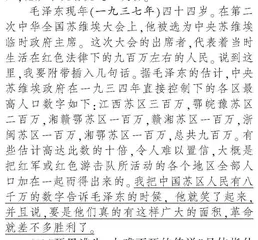 毛泽东现年(一九三七年)四十四岁。在第二
次中华全国苏维埃大会上,他被选为中央苏维埃
临时政府主席。这次大会的出席者,代表着当时
生活在红色法律下的九百万左右的人民。说到这
里,我要附带插入几句话。据毛泽东的估计,中央
苏维埃政府在一九三四年直接控制下的各区最
高人口数字如下:江西苏区三百万,鄂皖豫苏区
二百万,湘赣鄂苏区一百万,赣湘苏区一百万,浙
闽苏区一百万,湘鄂苏区一百万,总共九百万。有
些估计高达此数的十倍,令人难以置信,大概是
把红军或红色游击队所活动的各个地区全部人
口加在一起而得出来的。我把中国苏区人民有八
千万的数字告诉毛泽东的时候,他就笑了起来,
并且说,要是他们真的有这样广大的面积,革命
就差不多胜利了。